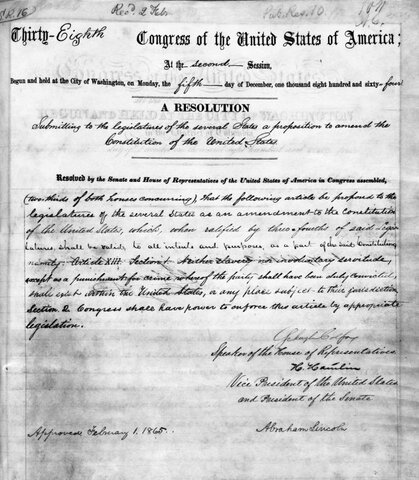 S.R. 16 Recd. 2 Feb. Pub. Res. 10
Thirty-Eighth Congress of the United States of America;
At the second Session,
Begun and held at the City of Washington, on Monday, the fifth day of December, one thousand eight hundred and sixty-four
A RESOLUTION
Submitting to the legislatures of the several States a proposition to amend the
Constitution of the United States.
Resolved by the Senate and House of Representatives of the United States of America in Congress assembled,
(two-thirds of both houses concurring), That the following article be proposed to the
legislatures of the several States as an amendment to the Constitution
of the United States, which, when ratified by three-fourths of said Legis-
latures, shall be valid, to all intents and purposes, as a part of the said Constitution,
namely: Article XIII. Section 1. Neither slavery nor involuntary servitude,
except as a punishment for crime whereof the party shall have been duly convicted,
shall exist within the United States, or any place subject to their jurisdiction.
Section 2. Congress shall have power to enforce this article by appropriate
legislation.
Schuyler Colfax
Speaker of the House of Representatives.
H. Hamlin
Vice President of the United States
and President of the Senate
Approved February 1. 1865. Abraham Lincoln